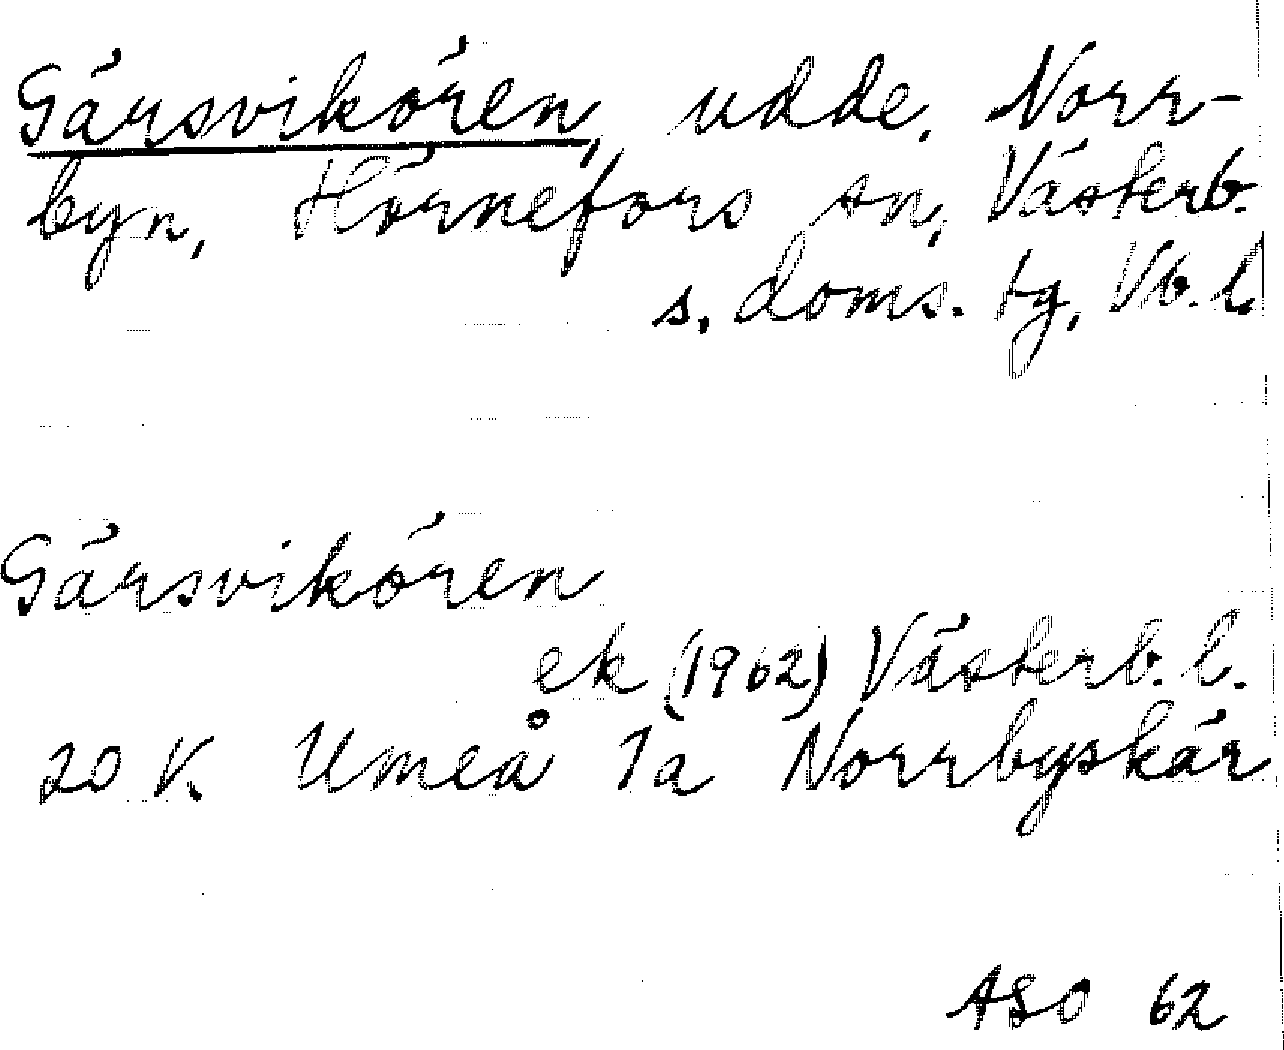 Gärsvikören, udde, Norr-
byn, Hörnefors sn, Västerb.
s. doms. tg, Vb. l.
Gärsvikören
ek (1962) Västerb. l.
20 K. Umeå 1a Norrbyskär
ASO 62